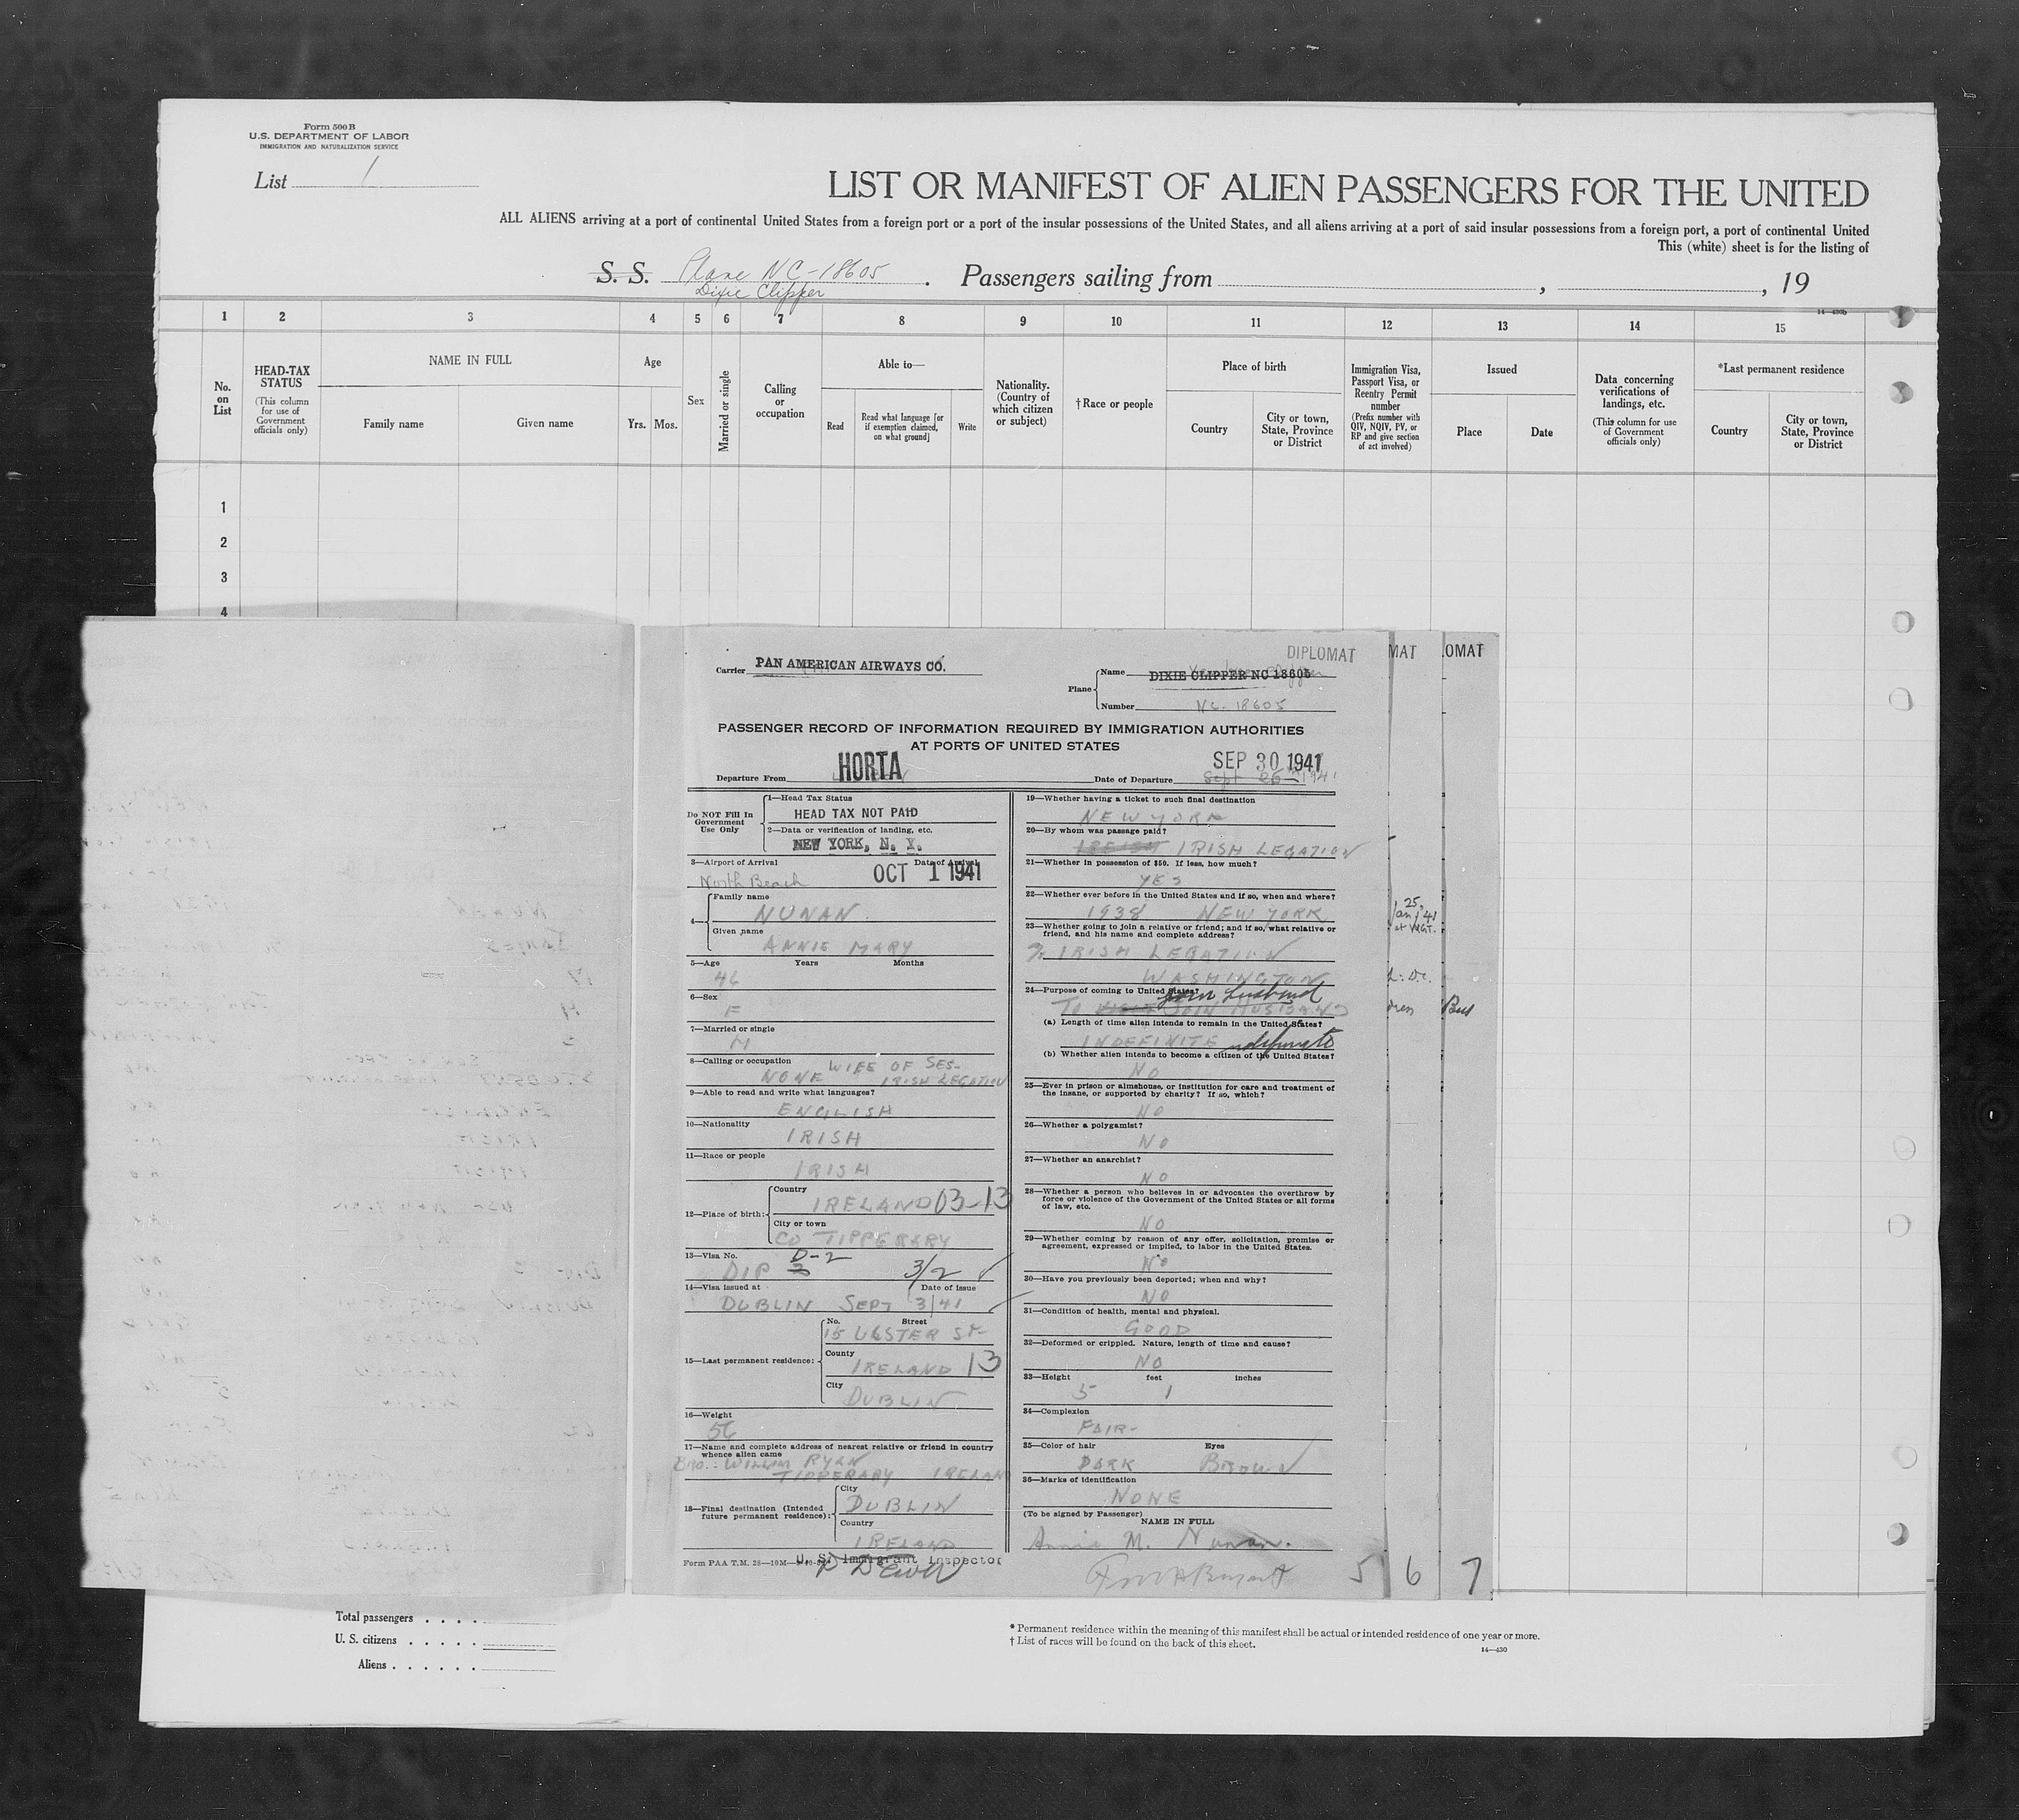 Form 500 B
U.S. DEPARTMENT OF LABOR
IMMIGRATION AND NATURALIZATION SERVICE
List 1
LIST OR MANIFEST OF ALIEN PASSENGERS FOR THE UNITED
ALL ALIENS arriving at a port of continental United States from a foreign port or a port of the insular possessions of the United States, and all aliens arriving at a port of said insular possessions from a foreign port, a port of continental United
This (white) sheet is for the listing of
S. S. Plane NC-18605 . Passengers sailing from , , 19
Dixie Clipper
14—430b
1 2 3 4 5 6 7 8 9 10 11 12 13 14 15
No. on List
HEAD-TAX STATUS
(This column for use of Government officials only)
NAME IN FULL
Family name
Given name
Age
Yrs. Mos.
Sex
Married or single
Calling or occupation
Able to—
Read
Read what language [or if exemption claimed, on what ground]
Write
Nationality. (Country of which citizen or subject)
† Race or people
Place of birth
Country
City or town, State, Province or District
Immigration Visa, Passport Visa, or Reentry Permit number
(Prefix number with QIV, NQIV, PV, or RP and give section of act involved)
Issued
Place
Date
Data concerning verifications of landings, etc.
(This column for use of Government officials only)
*Last permanent residence
Country
City or town, State, Province or District
1
2
3
4
DIPLOMAT
MAT
OMAT
Carrier PAN AMERICAN AIRWAYS CO.
Plane
Name DIXIE CLIPPER NC 18605
Number NC. 18605
PASSENGER RECORD OF INFORMATION REQUIRED BY IMMIGRATION AUTHORITIES
AT PORTS OF UNITED STATES
Departure From HORTA
Date of Departure SEP 30 1941
Sept 26 1941
Do NOT Fill In Government Use Only
1—Head Tax Status
HEAD TAX NOT PAID
2—Data or verification of landing, etc.
NEW YORK, N. Y.
3—Airport of Arrival Date of Arrival
North Beach OCT 1 1941
4—
Family name
NUNAN
Given name
ANNIE MARY
5—Age Years Months
46
6—Sex
F
7—Married or single
M
8—Calling or occupation WIFE OF SES-
NONE IRISH LEGATION
9—Able to read and write what languages?
ENGLISH
10—Nationality
IRISH
11—Race or people
IRISH
12—Place of birth:
Country
IRELAND 03-13
City or town
CO TIPPERARY
13—Visa No. D-2
DIP 3/2
14—Visa issued at Date of issue
DUBLIN SEPT 3/41
15—Last permanent residence:
No. Street
15 ULSTER ST-
County
IRELAND 13
City
DUBLIN
16—Weight
56
17—Name and complete address of nearest relative or friend in country
whence alien came
BRO.- WILLIAM RYAN
TIPPERARY IRELAND
18—Final destination (Intended future permanent residence):
City
DUBLIN
Country
IRELAND
Form PAA T.M. 28—10M—
U. S. Immigrant Inspector
19—Whether having a ticket to such final destination
NEW YORK
20—By whom was passage paid?
IRISH IRISH LEGATION
21—Whether in possession of $50. If less, how much?
YES
22—Whether ever before in the United States and if so, when and where?
1938 NEW YORK
23—Whether going to join a relative or friend; and if so, what relative or
friend, and his name and complete address?
% IRISH LEGATION
WASHINGTON
24—Purpose of coming to United States? join husband
TO JOIN HUSBAND
(a) Length of time alien intends to remain in the United States?
INDEFINITE indefinite
(b) Whether alien intends to become a citizen of the United States?
NO
25—Ever in prison or almshouse, or institution for care and treatment of
the insane, or supported by charity? If so, which?
NO
26—Whether a polygamist?
NO
27—Whether an anarchist?
NO
28—Whether a person who believes in or advocates the overthrow by
force or violence of the Government of the United States or all forms
of law, etc.
NO
29—Whether coming by reason of any offer, solicitation, promise or
agreement, expressed or implied, to labor in the United States.
NO
30—Have you previously been deported; when and why?
NO
31—Condition of health, mental and physical.
GOOD
32—Deformed or crippled. Nature, length of time and cause?
NO
33—Height feet inches
5 1
34—Complexion
FAIR-
35—Color of hair Eyes
DARK BROWN
36—Marks of identification
NONE
(To be signed by Passenger)
NAME IN FULL
Annie M. Nunan.
5 6 7
Total passengers . . . .
U. S. citizens . . . . .
Aliens . . . . . .
* Permanent residence within the meaning of this manifest shall be actual or intended residence of one year or more.
† List of races will be found on the back of this sheet.
14—430